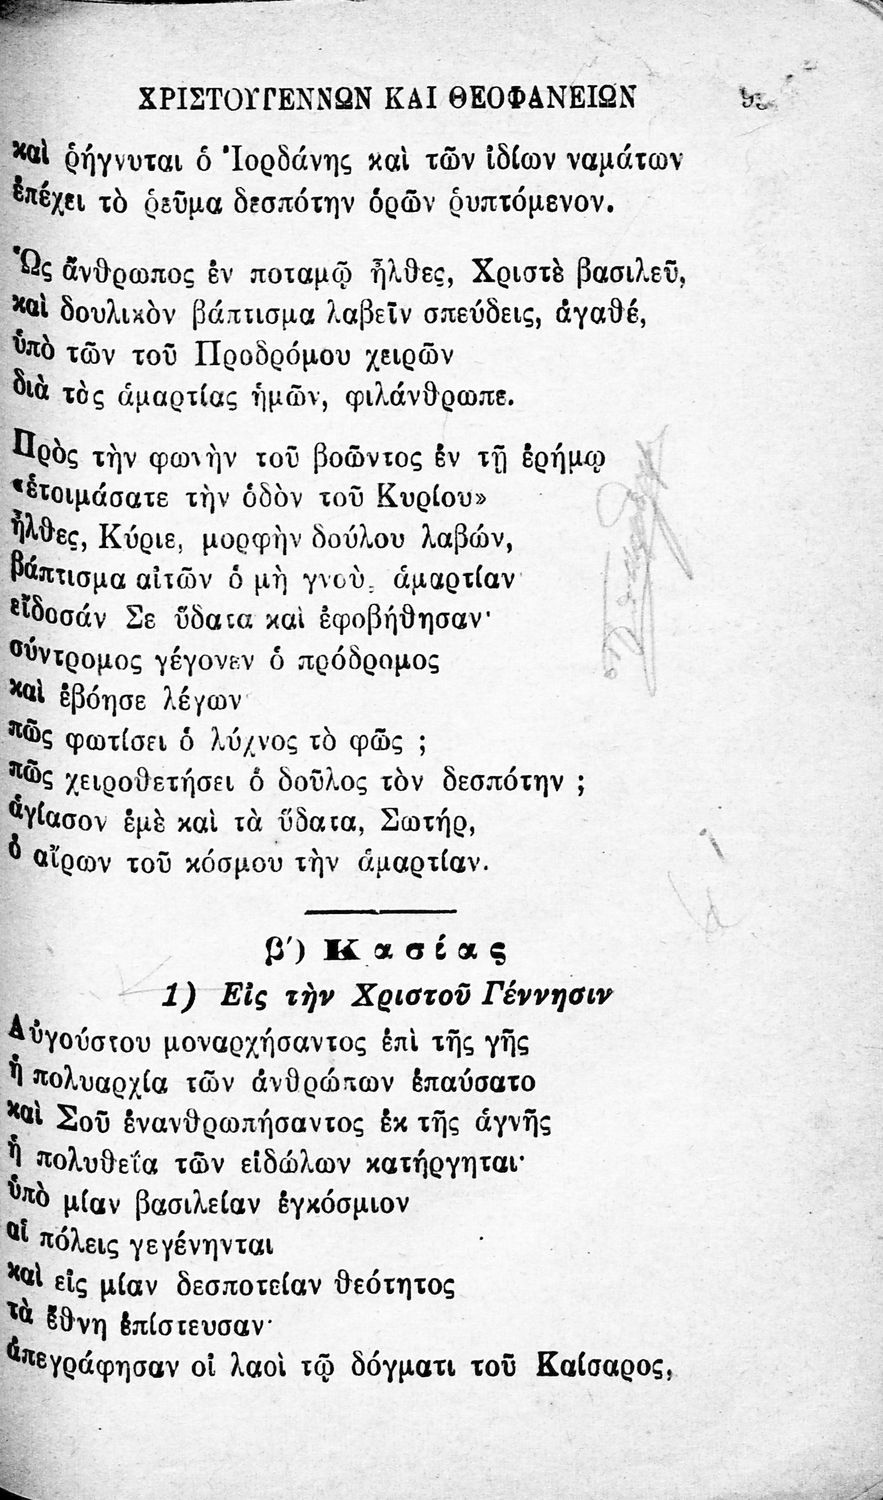 ΧΡΙΣΤΟΥΓΕΝΝΩΝ ΚΑΙ ΘΕΟΦΑΝΕΙΩΝ
καὶ ῥήγνυται ὁ Ἰορδάνης καὶ τῶν ἰδίων ναμάτων
ἐπέχει τὸ ῥεῦμα δεσπότην ὁρῶν ῥυπτόμενον.
Ὡς ἄνθρωπος ἐν ποταμῷ ἦλθες, Χριστὲ βασιλεῦ,
καὶ δουλικὸν βάπτισμα λαβεῖν σπεύδεις, ἀγαθέ,
ὑπὸ τῶν τοῦ Προδρόμου χειρῶν
διὰ τὰς ἁμαρτίας ἡμῶν, φιλάνθρωπε.
Πρὸς τὴν φωνὴν τοῦ βοῶντος ἐν τῇ ἐρήμῳ
«ἑτοιμάσατε τὴν ὁδὸν τοῦ Κυρίου»
ἦλθες, Κύριε, μορφὴν δούλου λαβών,
βάπτισμα αἰτῶν ὁ μὴ γνοὺς ἁμαρτίαν·
εἴδοσάν Σε ὕδατα καὶ ἐφοβήθησαν·
σύντρομος γέγονεν ὁ πρόδρομος
καὶ ἐβόησε λέγων·
πῶς φωτίσει ὁ λύχνος τὸ φῶς ;
πῶς χειροθετήσει ὁ δοῦλος τὸν δεσπότην ;
ἁγίασον ἐμὲ καὶ τὰ ὕδατα, Σωτήρ,
ὁ αἴρων τοῦ κόσμου τὴν ἁμαρτίαν.
β′) Κασίας
1) Εἰς τὴν Χριστοῦ Γέννησιν
Αὐγούστου μοναρχήσαντος ἐπὶ τῆς γῆς
ἡ πολυαρχία τῶν ἀνθρώπων ἐπαύσατο
καὶ Σοῦ ἐνανθρωπήσαντος ἐκ τῆς ἁγνῆς
ἡ πολυθεΐα τῶν εἰδώλων κατήργηται·
ὑπὸ μίαν βασιλείαν ἐγκόσμιον
αἱ πόλεις γεγένηνται
καὶ εἰς μίαν δεσποτείαν θεότητος
τὰ ἔθνη ἐπίστευσαν·
ἀπεγράφησαν οἱ λαοὶ τῷ δόγματι τοῦ Καίσαρος,